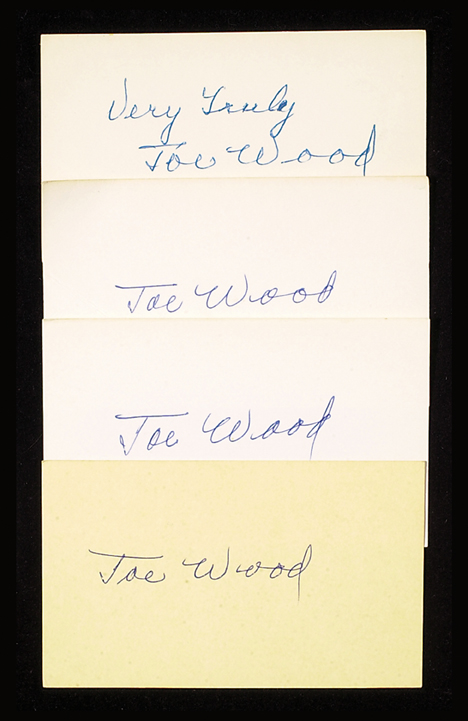 Very Truly
Joe Wood
Joe Wood
Joe Wood
Joe Wood